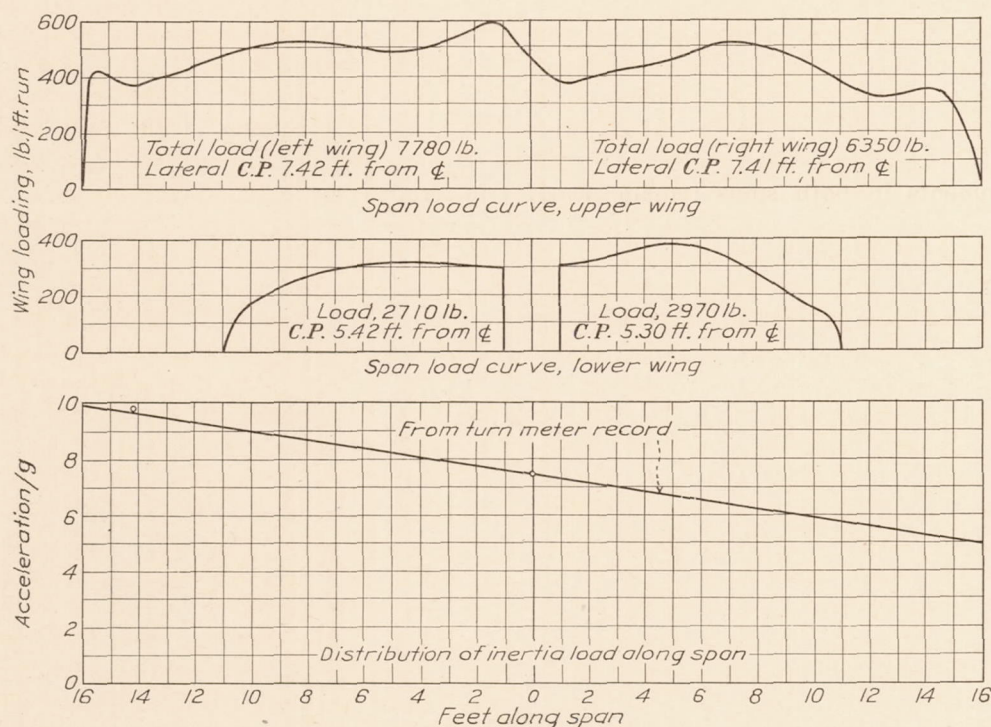 Wing loading, lb./ft.run
600
400
200
0
Total load (left wing) 7780 lb.
Lateral C.P. 7.42 ft. from ℄
Total load (right wing) 6350 lb.
Lateral C.P. 7.41 ft. from ℄
Span load curve, upper wing
400
200
0
Load, 2710 lb.
C.P. 5.42 ft. from ℄
Load, 2970 lb.
C.P. 5.30 ft. from ℄
Span load curve, lower wing
Acceleration/g
10
8
6
4
2
0
From turn meter record
Distribution of inertia load along span
16 14 12 10 8 6 4 2 0 2 4 6 8 10 12 14 16
Feet along span